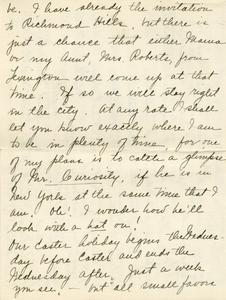 be. I have already the invitation
to Richmond Hills, but there is
just a chance that either Mama
or my Aunt, Mrs. Roberts, from
Lexington will come up at that
time. If so we will stay right
in the city. At any rate I shall
let you know exactly where I am
to be in plenty of time, for one
of my plans is to catch a glimpse
of Mr. Curiosity, if he is in
New York at the same time that I
am. Oh! I wonder how he'll
look with a hat on!
Our Easter holiday begins the Wednes-
day before Easter and ends the
Wednesday after. Just a week
you see! – but all small favors